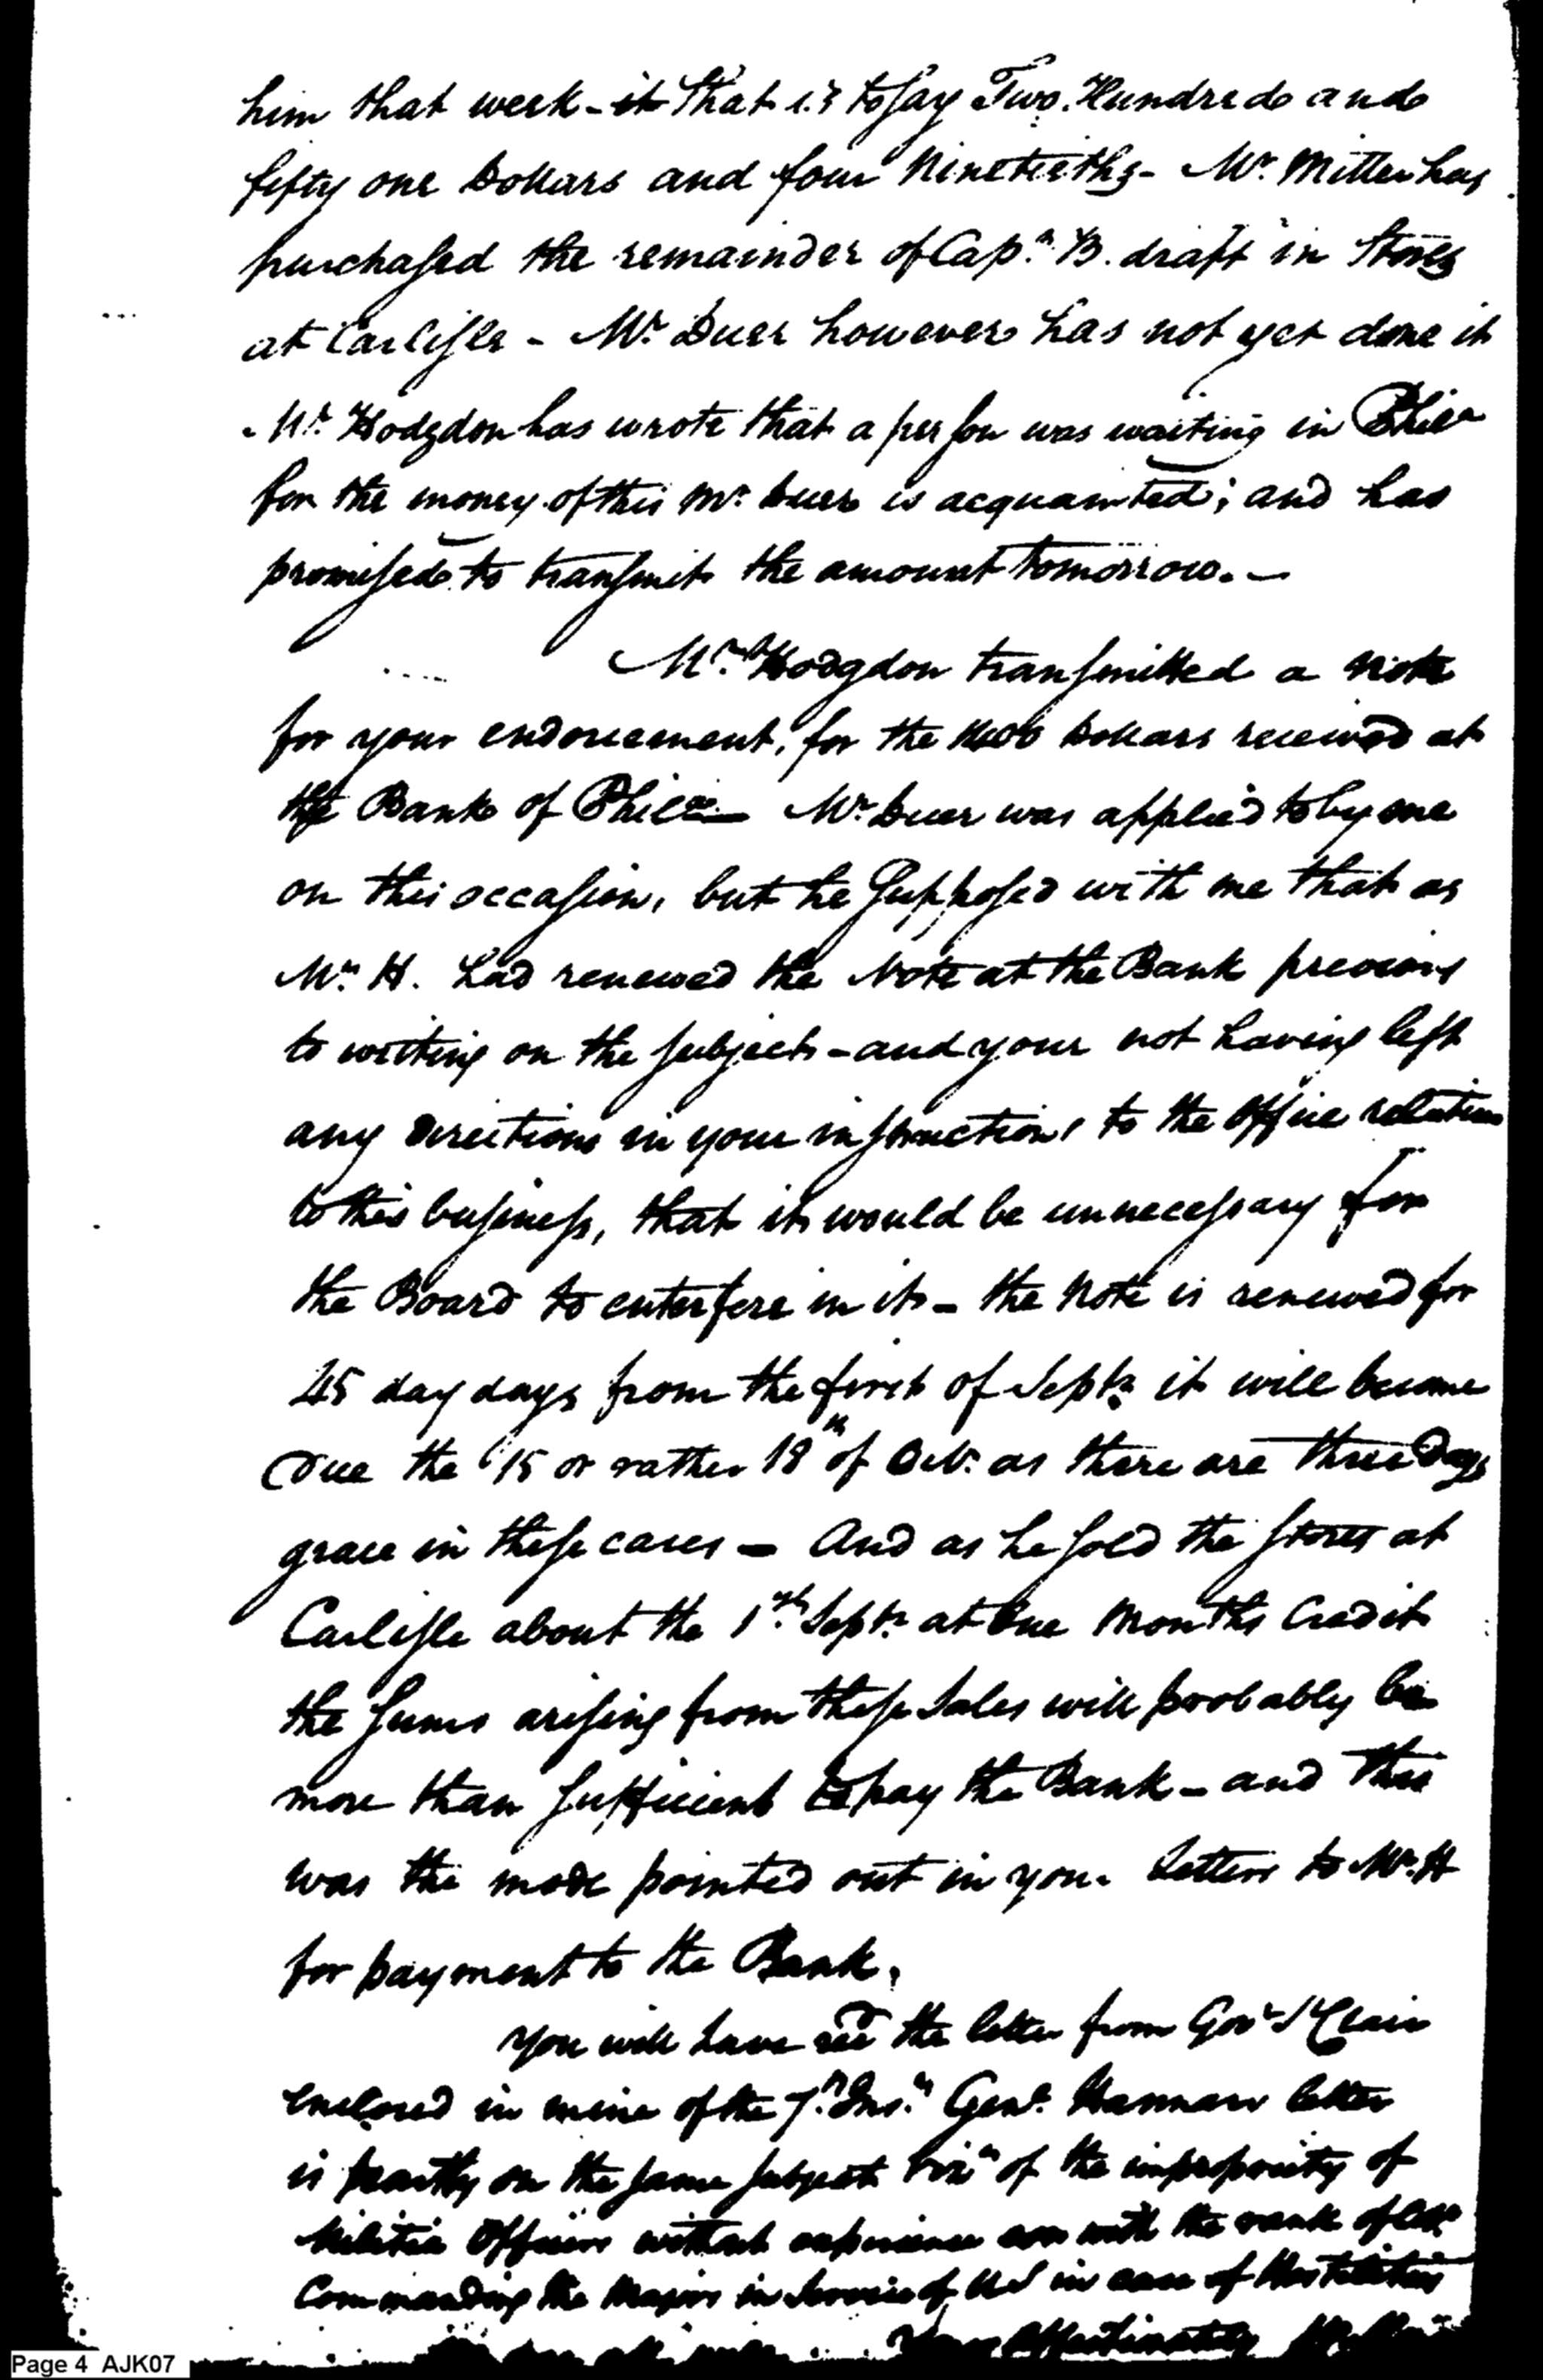 him that week - it that is to say Two Hundred and
fifty one Dollars and four Ninetieths - Mr. Miller has
purchased the remainder of Capn. B. draft in Stores
at Carlisle - Mr. Duer however has not yet done it
Mr. Hodgdon has wrote that a person was waiting in Phila
for the money of this Mr. Duer is acquainted; and has
promised to transmit the amount tomorrow. -
Mr. Hodgdon transmitted a note
for your endorcement, for the Dollars received at
the Bank of Phila - Mr. Duer was applied to by me
on this occasion, but he supposed with me that as
Mr. H. had renewed the Note at the Bank previous
to writing on the subject - and your not having left
any directions in your instructions to the Office relative
to this business, that it would be unnecessary for
the Board to enterfere in it - the Note is renewed for
45 day days from the first of Septr. it will become
due the 15 or rather 18th of Oct. as there are three Days
grace in these cases - And as he sold the stores at
Carlisle about the 1st. Septr. at One Months Credit
the sums arising from these Sales will probably be
more than sufficient to pay the Bank - and this
was the mode pointed out in your Letters to Mr. H
for payment to the Bank.
You will have recd the letter from Govr St Clair
enclosed in mine of the 7th. Inst. Genl. Harmars letter
is partly on the same subject Vizt of the impropriety of
Militia Officers without experience with the rank of
Commanding the Majors in Service of US in case of Hostilities
Your Affectionately
Page 4 AJK07